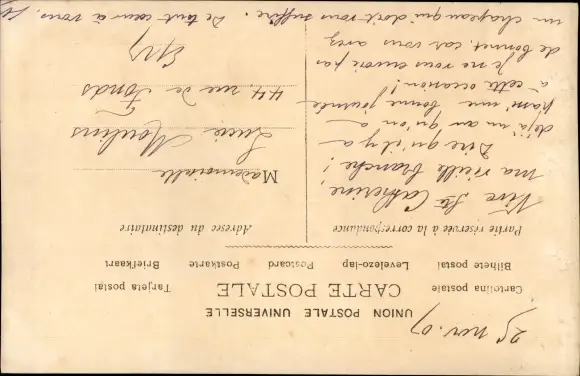 25 nov. 07
UNION POSTALE UNIVERSELLE
CARTE POSTALE
Cartolina postale Tarjeta postal
Bilhete postal Levelezo-lap Postcard Postkarte Briefkaart
Partie réservée à la correspondance
Adresse du destinataire
Vive Ste Catherine,
ma vieille branche !
Dire qu'il y a
déjà un an qu'on a
passé une bonne journée
à cette occasion !
Je ne vous envoie pas
de bonnet car vous avez
un chapeau qui doit vous suffire. De tout cœur à vous.
Mademoiselle
Lucie Moulins
44, rue de
Fonds